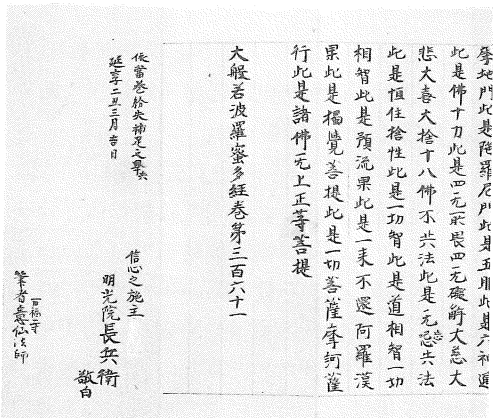 摩地門此是陀羅尼門此是五眼此是六神通
此是佛十力此是四无所畏四无礙解大慈大
悲大喜大捨十八佛不共法此是无忘共法
此是恒住捨性此是一切智此是道相智一切
相智此是預流果此是一来不還阿羅漢
果此是獨覺菩提此是一切菩薩摩訶薩
行此是諸佛无上正等菩提
大般若波羅蜜多経巻第三百六十一
依當巻紛失補足之畢矣
延享二丑三月吉日
信心之施主
明光院長兵衛
敬白
筆者意仙法師